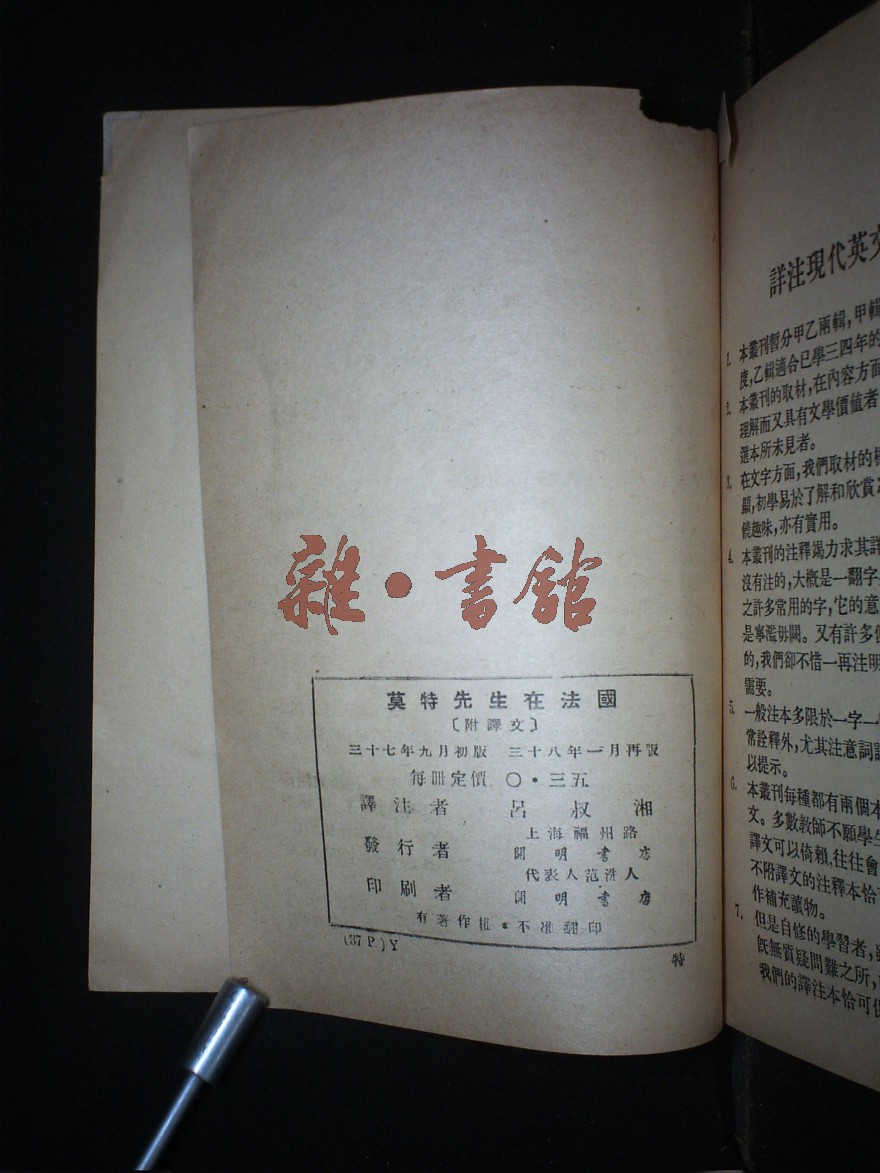 雜·書館
莫特先生在法國
〔附譯文〕
三十七年九月初版 三十八年一月再版
每冊定價 〇·三五
譯注者 呂叔湘
發行者 上海福州路
開明書店
代表人范洗人
印刷者 開明書店
有著作權·不准翻印
(37 P.) Y
特
詳注現代英文
1. 本叢刊暫分甲乙兩輯,甲輯
度,乙輯適合已學三四年的
2. 本叢刊的取材,在內容方面
理解而又具有文學價值者
選本所未見者。
3. 在文字方面,我們取材的標
顯,初學易於了解和欣賞
饒趣味,亦有實用。
4. 本叢刊的注釋竭力求其詳
沒有注的,大概是一翻字
之許多常用的字,它的意
是寧濫毋闕。又有許多
的,我們卻不惜一再注明
需要。
5. 一般注本多限於一字一
常詮釋外,尤其注意詞
以提示。
6. 本叢刊每種都有兩個本
文。多數教師不願學生
譯文可以倚賴,往往會
不附譯文的注釋本恰
作補充讀物。
7. 但是自修的學習者,
旣無質疑問難之所,
我們的譯注本恰可